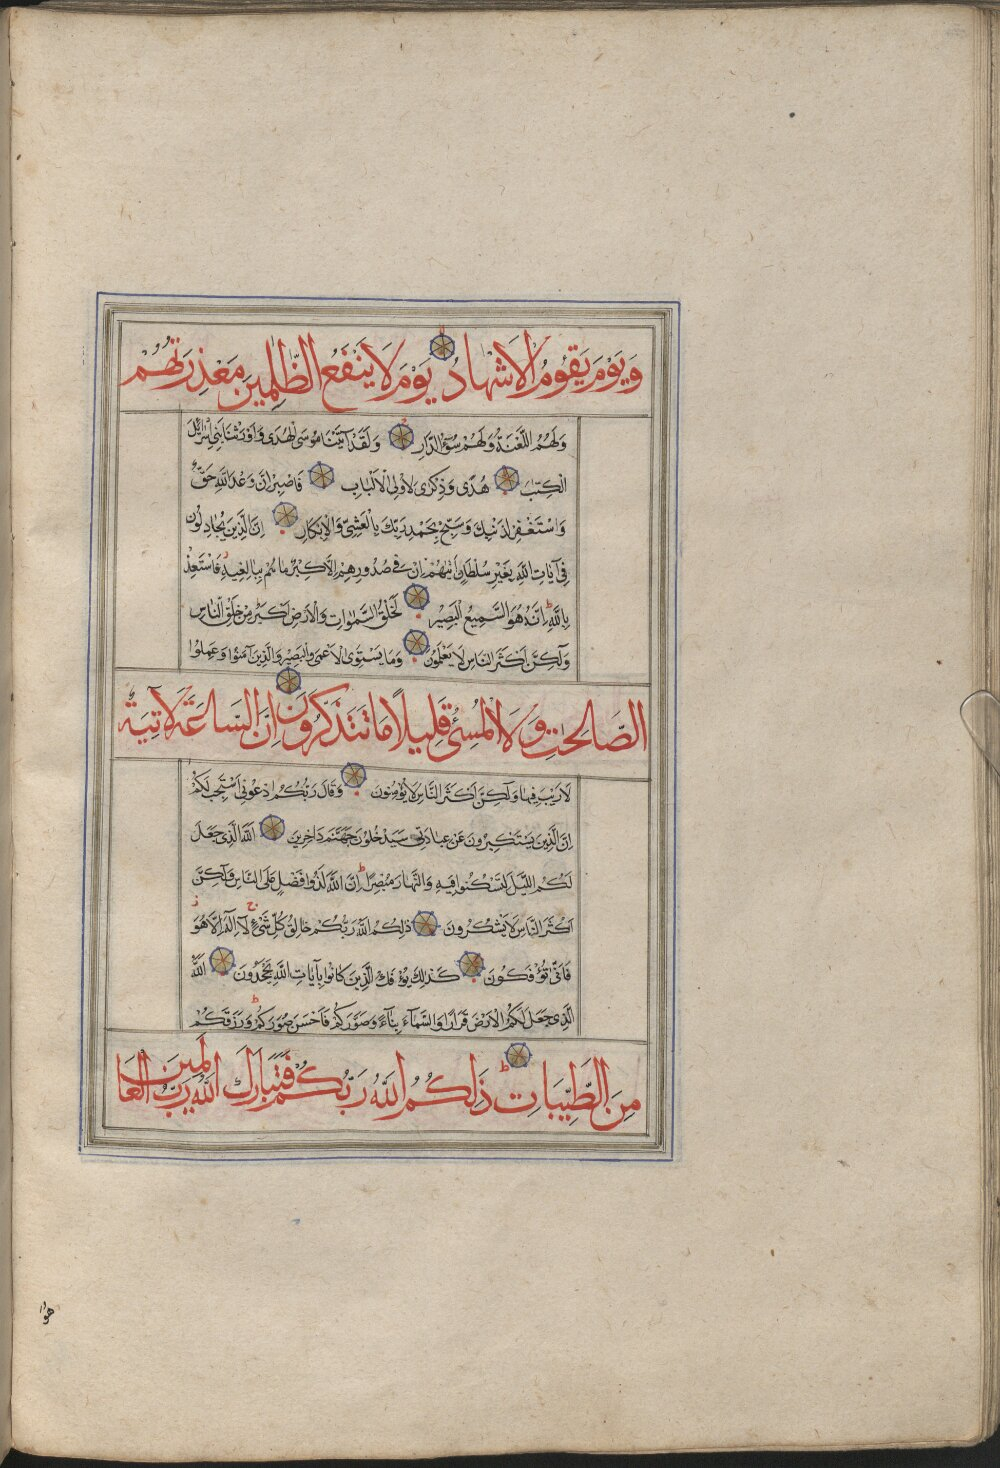 وَيَوْمَ يَقُومُ الْاَشْهَادُ يَوْمَ لَا يَنْفَعُ الظّٰلِمِينَ مَعْذِرَتُهُمْ
وَلَهُمُ اللَّعْنَةُ وَلَهُمْ سُوٓءُ الدَّارِ وَلَقَدْ آتَيْنَا مُوسَى الْهُدَى وَاَوْرَثْنَا بَنِى اِسْرَآئِلَ
الْكِتٰبَ هُدًى وَذِكْرَى لِاُولِى الْاَلْبَابِ فَاصْبِرْ اِنَّ وَعْدَ اللّٰهِ حَقٌّ
وَاسْتَغْفِرْ لِذَنْبِكَ وَسَبِّحْ بِحَمْدِ رَبِّكَ بِالْعَشِىِّ وَالْاِبْكَارِ اِنَّ الَّذِينَ يُجَادِلُونَ
فِى آيَاتِ اللّٰهِ بِغَيْرِ سُلْطَانٍ اَتٰهُمْ اِنْ فِى صُدُورِهِمْ اِلَّا كِبْرٌ مَا هُمْ بِبَالِغِيهِ فَاسْتَعِذْ
بِاللّٰهِ اِنَّهُ هُوَ السَّمِيعُ الْبَصِيرُ لَخَلْقُ السَّمٰوَاتِ وَالْاَرْضِ اَكْبَرُ مِنْ خَلْقِ النَّاسِ
وَلٰكِنَّ اَكْثَرَ النَّاسِ لَا يَعْلَمُونَ وَمَا يَسْتَوِى الْاَعْمَى وَالْبَصِيرُ وَالَّذِينَ آمَنُوا وَعَمِلُوا
الصَّالِحٰتِ وَلَا الْمُسِىٓءُ قَلِيلًا مَا تَتَذَكَّرُونَ اِنَّ السَّاعَةَ لَاٰتِيَةٌ
لَا رَيْبَ فِيهَا وَلٰكِنَّ اَكْثَرَ النَّاسِ لَا يُؤْمِنُونَ وَقَالَ رَبُّكُمُ ادْعُونِى اَسْتَجِبْ لَكُمْ
اِنَّ الَّذِينَ يَسْتَكْبِرُونَ عَنْ عِبَادَتِى سَيَدْخُلُونَ جَهَنَّمَ دَاخِرِينَ اَللّٰهُ الَّذِى جَعَلَ
لَكُمُ اللَّيْلَ لِتَسْكُنُوا فِيهِ وَالنَّهَارَ مُبْصِرًا اِنَّ اللّٰهَ لَذُوا فَضْلٍ عَلَى النَّاسِ وَلٰكِنَّ
اَكْثَرَ النَّاسِ لَا يَشْكُرُونَ ذٰلِكُمُ اللّٰهُ رَبُّكُمْ خَالِقُ كُلِّ شَىْءٍ لَآ اِلٰهَ اِلَّا هُوَ
فَاَنّٰى تُؤْفَكُونَ كَذٰلِكَ يُؤْفَكُ الَّذِينَ كَانُوا بِآيَاتِ اللّٰهِ يَجْحَدُونَ اَللّٰهُ
الَّذِى جَعَلَ لَكُمُ الْاَرْضَ قَرَارًا وَالسَّمَآءَ بِنَآءً وَصَوَّرَكُمْ فَاَحْسَنَ صُوَرَكُمْ وَرَزَقَكُمْ
مِنَ الطَّيِّبَاتِ ذٰلِكُمُ اللّٰهُ رَبُّكُمْ فَتَبَارَكَ اللّٰهُ رَبُّ الْعَالَمِينَ
هُوَ